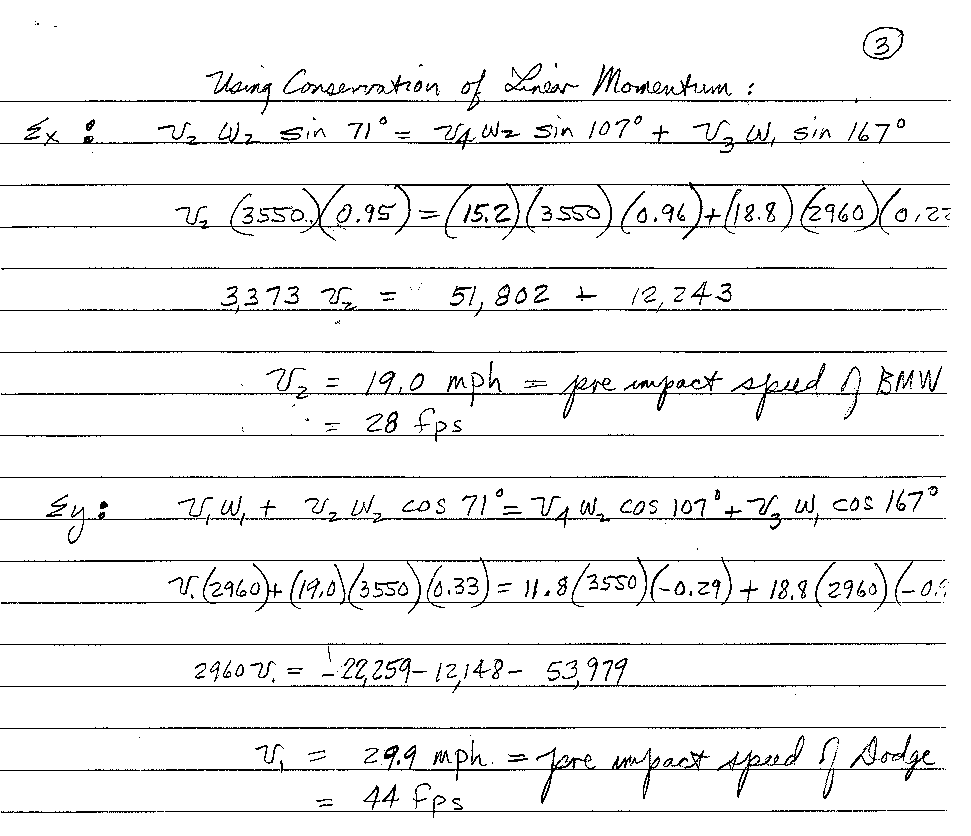 3
Using Conservation of Linear Momentum:
Σx: v₂ W₂ sin 71° = v₄ W₂ sin 107° + v₃ W₁ sin 167°
v₂ (3550)(0.95) = (15.2)(3550)(0.96) + (18.8)(2960)(0.22
3,373 v₂ = 51,802 + 12,243
v₂ = 19.0 mph = pre impact speed of BMW
= 28 fps
Σy: v₁ W₁ + v₂ W₂ cos 71° = v₄ W₂ cos 107° + v₃ W₁ cos 167°
v₁(2960) + (19.0)(3550)(0.33) = 11.8(3550)(-0.29) + 18.8(2960)(-0.9
2960 v₁ = -22,259 - 12,148 - 53,979
v₁ = 29.9 mph. = pre impact speed of Dodge
= 44 fps